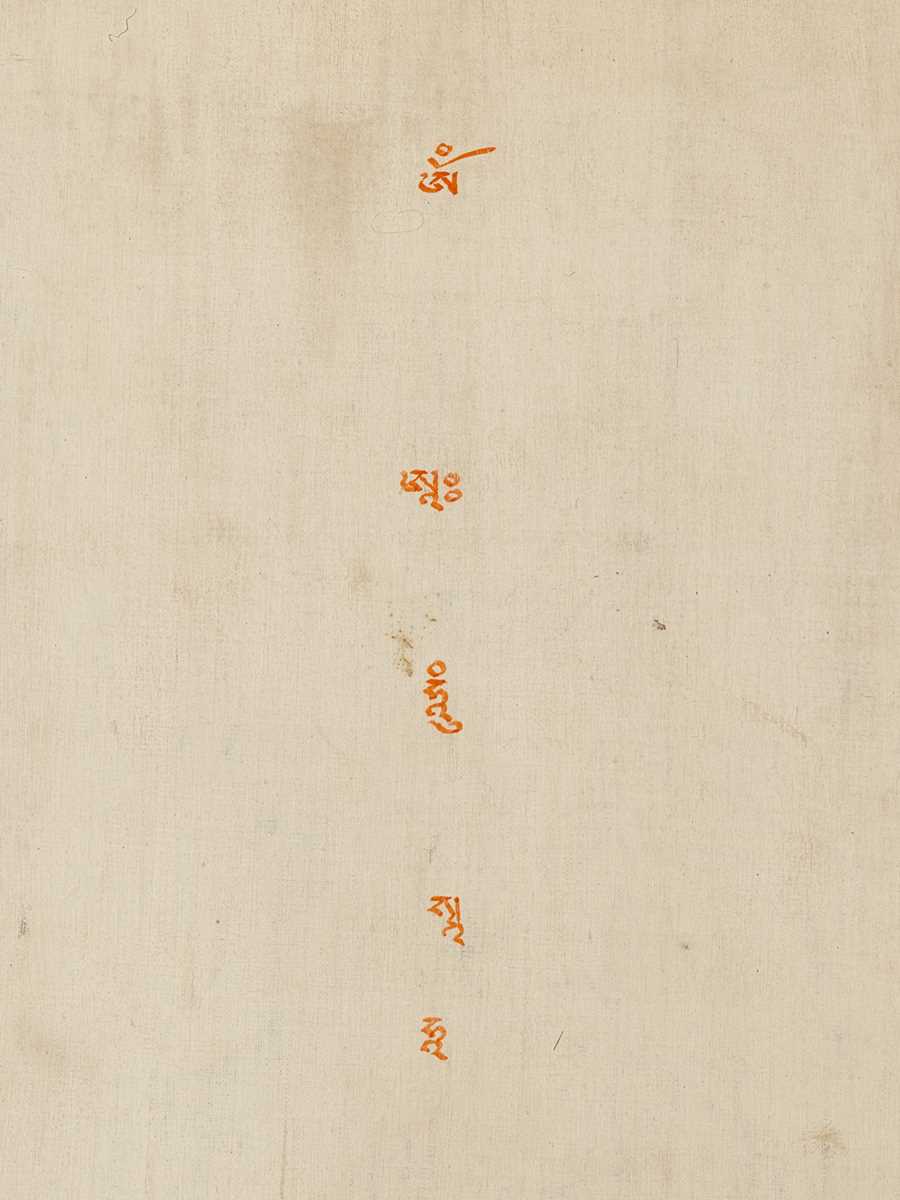 ཨོཾ
ཨཱཿ
ཧཱུཾ
སྭཱ
ཧཱ